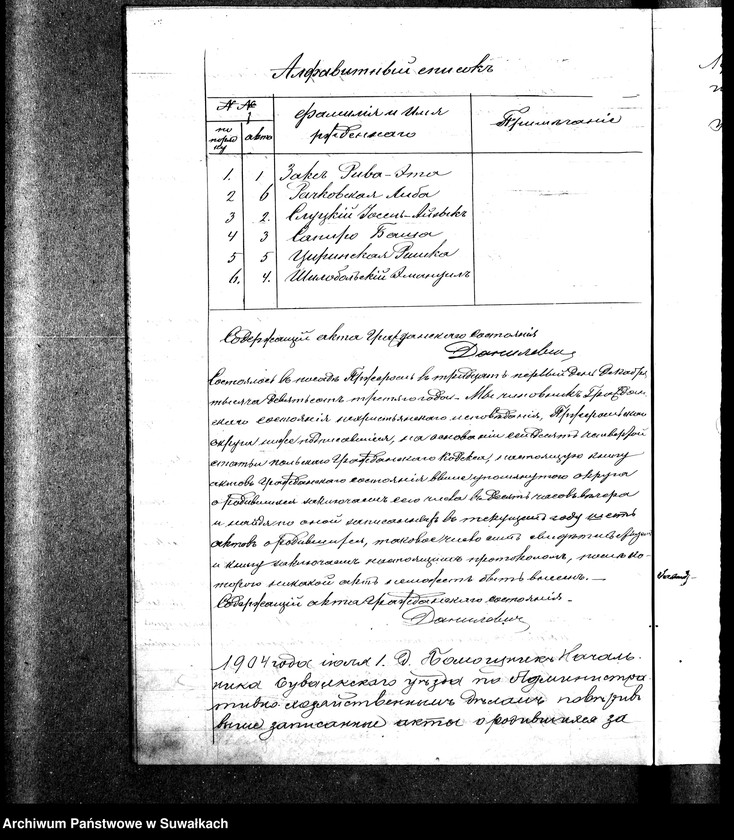 Алфавитный списокъ
№ №
по порядку
акта
Фамилія и Имя рожденнаго
Примѣчаніе
1. 1 Заксъ Рива-Эта
2 6 Рачковская Либа
3 2. Слуцкій Іосель-
4 3 Сапиро Баша
5 5 Циринская Ришка
6. 4. Шилобольскій Эмануилъ
Содержащій акта Гражданскаго состоянія
Даниловичъ
Состоялось въ посадѣ въ тридцать первый день Декабря
тысяча девятьсотъ третьяго года. Мы чиновникъ Граждан-
скаго состоянія нехристьянскаго исповѣданія,
округа ниже подписавшійся, на основаніи семдесятъ четвертой
статьи польскаго Гражданскаго Кодекса, настоящую книгу
актовъ Гражданскаго состоянія выше упомянутого округа
о родившихся заключаемъ сего числа въ десять часовъ вечера
и найдя по оной записанныхъ въ текущемъ году шесть
актовъ о родившихся, таковое число симъ
и книгу заключаемъ настоящимъ протоколомъ, послѣ ко-
тораго никакой актъ не можетъ быть внесенъ. —
Содержащій акта Гражданскаго состоянія.
Даниловичъ
1904 года іюля 1. д. Помощникъ Началь-
ника Сувалкскаго уѣзда по Администра
тивно-хозяйственнымъ дѣламъ повѣривъ
выше записанные акты о родившихся за
Archiwum Państwowe w Suwałkach